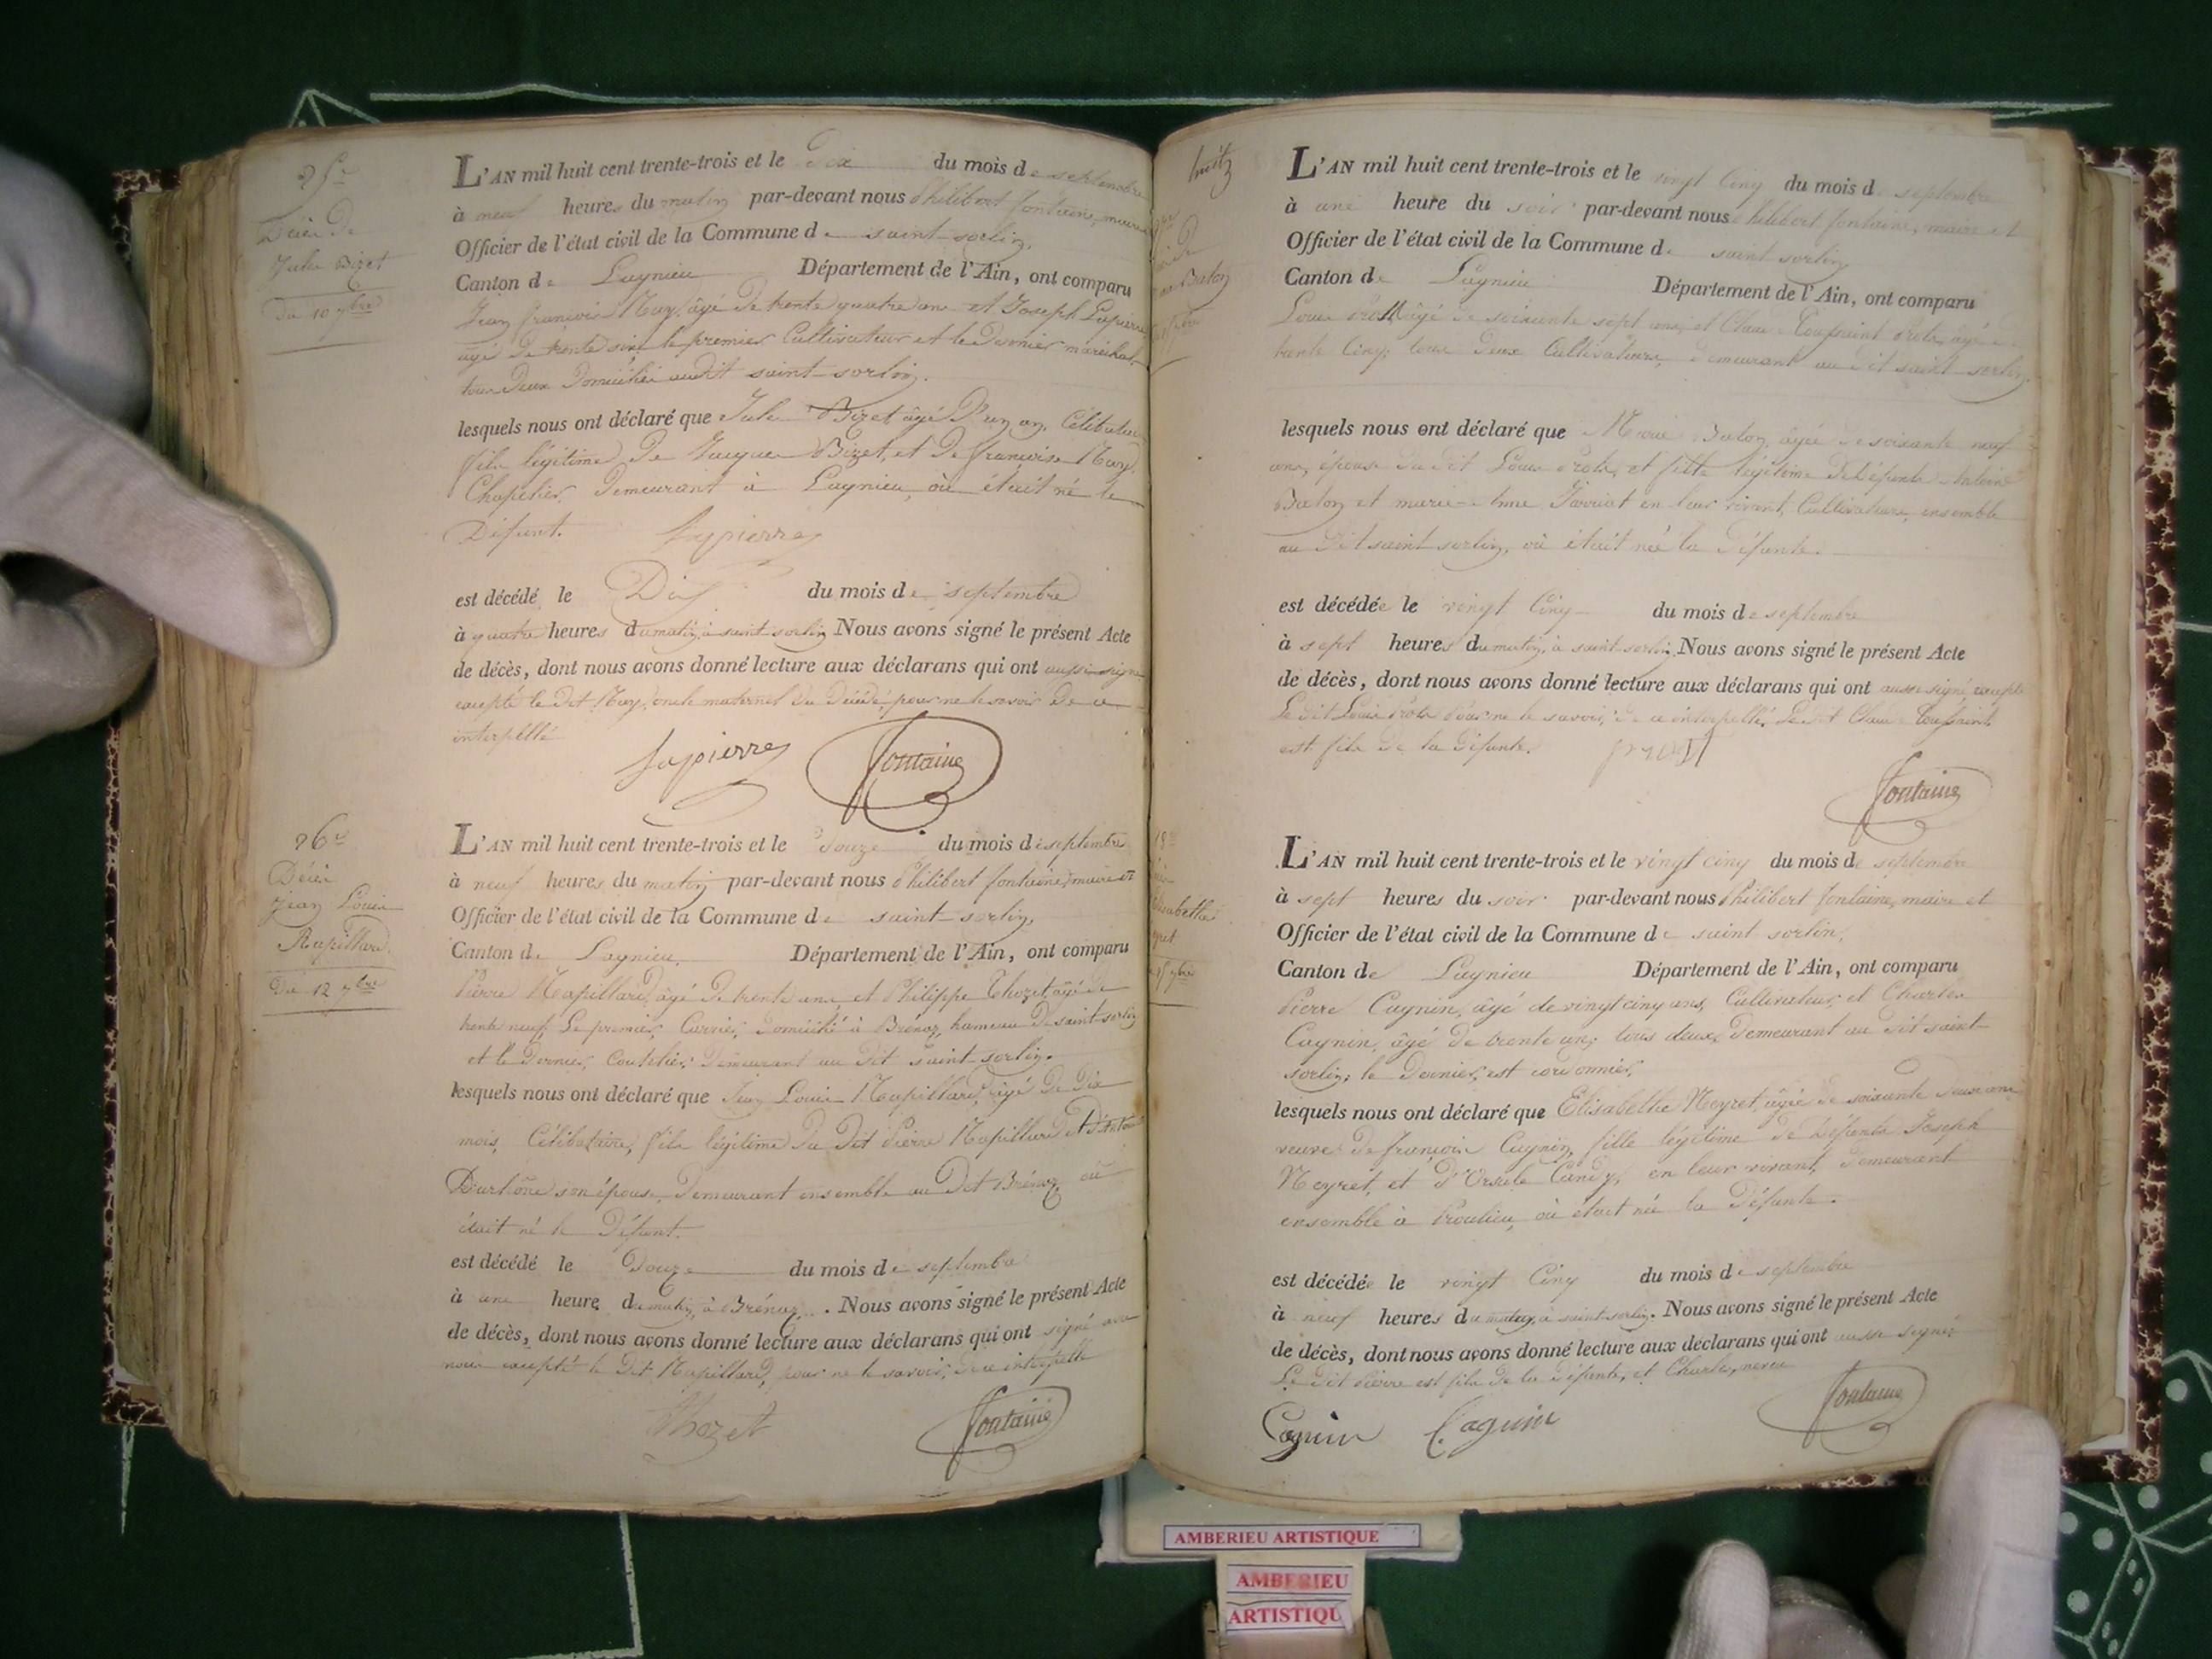 25e
Décès de
Jules Bizet
Du 10 7bre
L'AN mil huit cent trente-trois et le Dix du mois de septembre
à neuf heures du matin par-devant nous Philibert fontaine, maire
Officier de l'état civil de la Commune de saint-sorlin,
Canton de Lagnieu Département de l'Ain, ont comparu
Jean françois Nuy, âgé de trente quatre ans et Joseph Lapierre
âgé de trente six le premier Cultivateur et le Dernier maréchal,
tous Deux Domiciliés audit saint-sorlin.
lesquels nous ont déclaré que Jules Bizet âgé D'un an, Célibataire
fils légitime De Jacques Bizet, et De françoise Nuy,
Chapelier, Demeurant à Lagnieu, où était né le
Défunt. Lapierre
est décédé le Dix du mois de septembre
à quatre heures du matin, à saint-sorlin Nous avons signé le présent Acte
de décès, dont nous avons donné lecture aux déclarans qui ont aussi signé
excepté le dit Nuy, oncle maternel du Décédé, pour ne le savoir De ce
interpellé
Lapierre fontaine
26e
Décès
Jean Louis
Rapillard.
Du 12 7bre
L'AN mil huit cent trente-trois et le Douze du mois de septembre
à neuf heures du matin par-devant nous Philibert fontaine, maire et
Officier de l'état civil de la Commune de saint-sorlin,
Canton de Lagnieu Département de l'Ain, ont comparu
Pierre Rapillard, âgé De trente ans et Philippe Thozet, âgé de
trente neuf, Le premier, Carrier, Domicilié à Brénaz, hameau De saint-sorlin
et le Dernier, Demeurant au Dit saint-sorlin.
lesquels nous ont déclaré que Jean Louis Rapillard, âgé De Dix
mois, Célibataire, fils légitime Du Dit Pierre Rapillard et
son épouse, Demeurant ensemble au Dit Brénaz, où
était né le Défunt.
est décédé le Douze du mois de septembre
à une heure du matin, à Brénaz. Nous avons signé le présent Acte
de décès, dont nous avons donné lecture aux déclarans qui ont signé avec
nous excepté le Dit Rapillard, pour ne le savoir, De ce interpellé
Thozet fontaine
huit
L'AN mil huit cent trente-trois et le vingt Cinq du mois d septembre
à une heure du soir par-devant nous Philibert fontaine, maire et
Officier de l'état civil de la Commune de saint sorlin
Canton de Lagnieu Département de l'Ain, ont comparu
Louis âgé de soixante sept ans, et Claude Toussaint âgé de
trente Cinq; tous Deux Cultivateurs, Demeurant au Dit saint-sorlin,
lesquels nous ont déclaré que Marie Baton, âgée de soixante neuf
ans, épouse du dit Louis et fille légitime De Défunts Antoine
Baton et marie-Anne en leur vivant, Cultivateurs, ensemble
au Dit saint sorlin, où était née la Défunte.
est décédée le vingt Cinq du mois de septembre
à sept heures du matin, à saint-sorlin. Nous avons signé le présent Acte
de décès, dont nous avons donné lecture aux déclarans qui ont aussi signé, excepté
Le dit Louis pour ne le savoir, De ce interpellé. Le dit Claude Toussaint
est fils De la Défunte.
fontaine
L'AN mil huit cent trente-trois et le vingt cinq du mois de septembre
à sept heures du soir par-devant nous Philibert fontaine, maire et
Officier de l'état civil de la Commune de saint sorlin,
Canton de Lagnieu Département de l'Ain, ont comparu
Pierre Cagnin, âgé de vingt cinq ans, Cultivateur, et Charles
Cagnin, âgé de trente ans, tous deux, Demeurant au Dit saint-
sorlin; le Dernier, est cordonnier,
lesquels nous ont déclaré que Elisabethe Neyret, âgée de soixante Deux ans
veuve De françois Cagnin, fille légitime de Défunts Joseph
Neyret, et D'Ursule Candy, en leur vivant, Demeurant
ensemble à Proulieu, où était née la Défunte.
est décédée le vingt Cinq du mois de septembre
à neuf heures du matin, à saint-sorlin. Nous avons signé le présent Acte
de décès, dont nous avons donné lecture aux déclarans qui ont aussi signés
Le Dit Pierre est fils De la Défunte, et Charles, neveu
Cagnin Cagnin fontaine
AMBERIEU ARTISTIQUE
AMBERIEU
ARTISTIQU